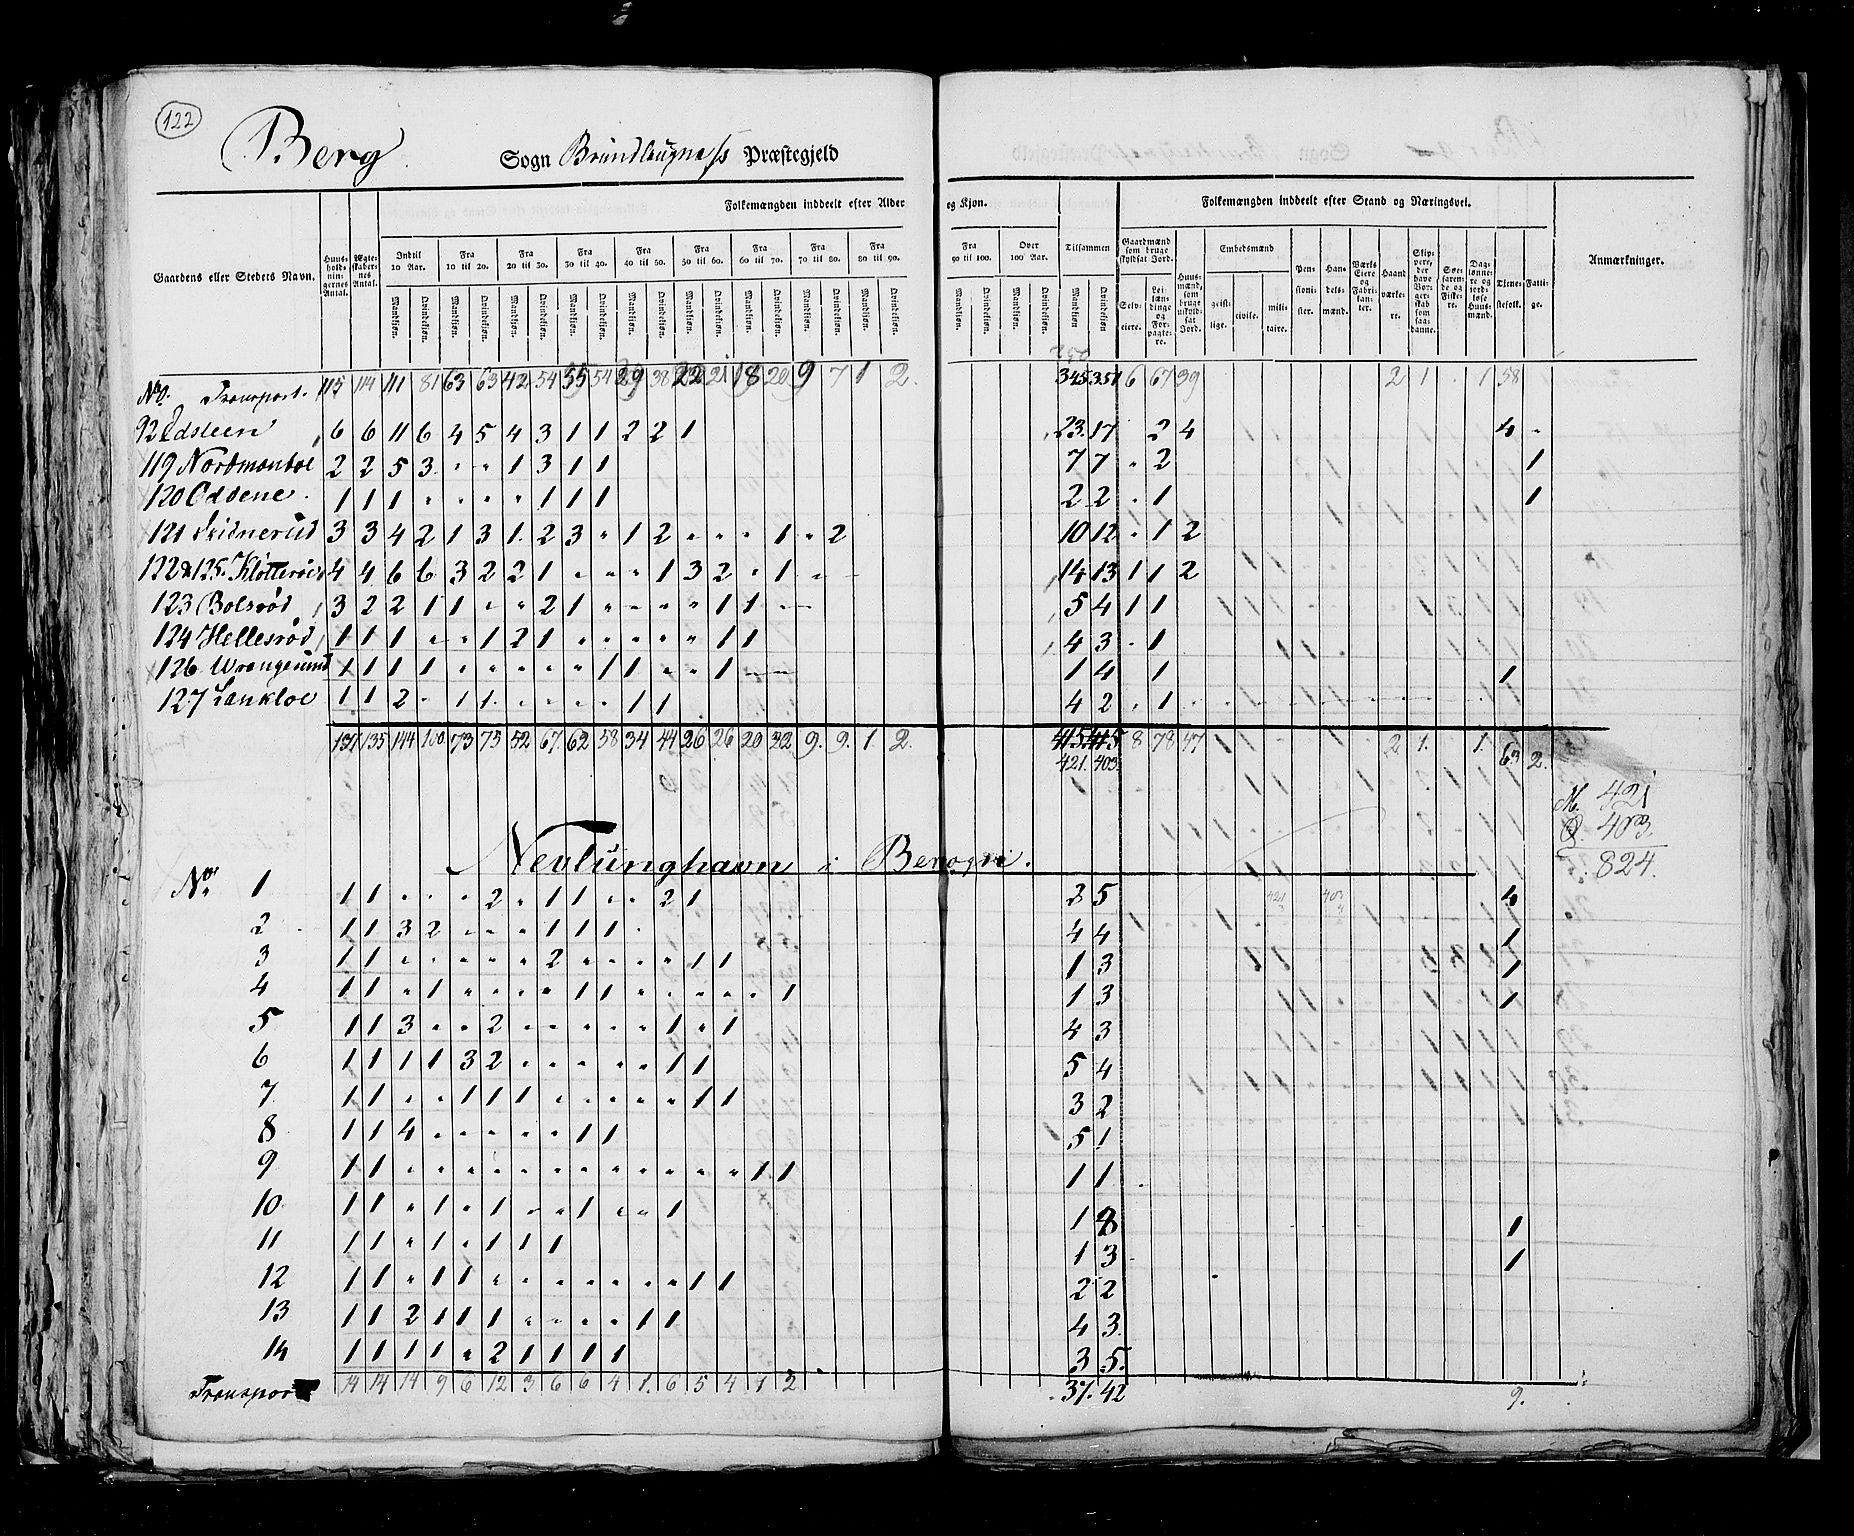 122
Berg Sogn Brundlaugnæs Præstegjeld
Folkemængden inddeelt efter Alder og Kjøn. Folkemængden inddeelt efter Stand og Næringsvei.
Gaardens eller Stedets Navn. Huusholdningernes Antal. Ægteskabernes Antal. Indtil 10 Aar. Fra 10 til 20. Fra 20 til 30. Fra 30 til 40. Fra 40 til 50. Fra 50 til 60. Fra 60 til 70. Fra 70 til 80. Fra 80 til 90. Fra 90 til 100. Over 100 Aar. Tilsammen Gaardmænd som bruge skyldsat Jord. Huusmænd, som bruge uskyldsat Jord. Embedsmænd Pensionister. Handelsmænd. Værks Eiere og Fabrikanter. Haandværkere. Skippere, der have Borgerskab som saadanne. Søefarende og Fiskere. Daglønnere og jordløse Huusmænd. Tjenestefolk. Fattige. Anmærkninger.
Mandkjøn. Qvindekjøn. Mandkjøn. Qvindekjøn. Mandkjøn. Qvindekjøn. Mandkjøn. Qvindekjøn. Mandkjøn. Qvindekjøn. Mandkjøn. Qvindekjøn. Mandkjøn. Qvindekjøn. Mandkjøn. Qvindekjøn. Mandkjøn. Qvindekjøn. Mandkjøn. Qvindekjøn. Mandkjøn. Qvindekjøn. Mandkjøn Qvindekjøn. Selveiere. Leilændinge og Forpagtere. geistlige. civile. militaire.
No. Transport. 115 114 111 81 63 63 42 54 55 54 29 38 22 21 18 20 9 7 1 2. 345 351 6 67 39 2 1 1 58
92 Edsteen 6 6 11 6 4 5 4 3 1 1 2 2 1 23 17 2 4 4
119 Nordmanboe 2 2 5 3 1 3 1 1 7 7 2 1
120 Oddene 1 1 1 1 1 1 2 2 1 1
121 Skidnerud 3 3 4 2 1 3 1 2 3 1 2 1 2 10 12 1 2
122 & 125. Kløtterød 4 4 6 6 3 2 2 1 1 3 2 1 14 13 1 1 2
123 Bolsrød 3 2 2 1 1 2 1 1 1 5 4 1 1
124 Hellesrød 1 1 1 1 2 1 1 1 4 3 1
126 Wrangesund 1 1 1 1 1 1 1 1 4 1 1
127 Lankloe 1 1 2 1 1 1 1 4 2 1
137 135 144 100 73 75 52 67 62 58 34 44 26 26 20 22 9. 9. 1. 2. 415 415 8 78 47 2 1. 1. 63 2.
421. 403.
M. 421
Q. 403
824.
Nevlunghavn i Bersogn.
No. 1 1 1 2 1 1 2 1 3 5 4
2 1 1 3 2 1 1 1 4 4 1
3 1 1 2 1 1 1 3 1
4 1 1 1 1 1 1 1 3 1
5 1 1 3 2 1 1 4 3
6 1 1 1 1 3 2 1 1 5 4
7 1 1 1 1 1 1 1 3 2
8 1 1 4 1 1 5 1
9 1 1 1 1 1 1
10 1 1 1 1 1 1 1
11 1 1 1 1 1 1 1 3 1
12 1 1 1 1 1 1 2 2
13 1 1 2 1 1 1 1 1 4 3
14 1 1 1 1 2 1 1 1 1 3 5.
Transport 14 14 14 9 6 12 3 6 6 4 1. 6 5 4 1 2 37. 42 9.